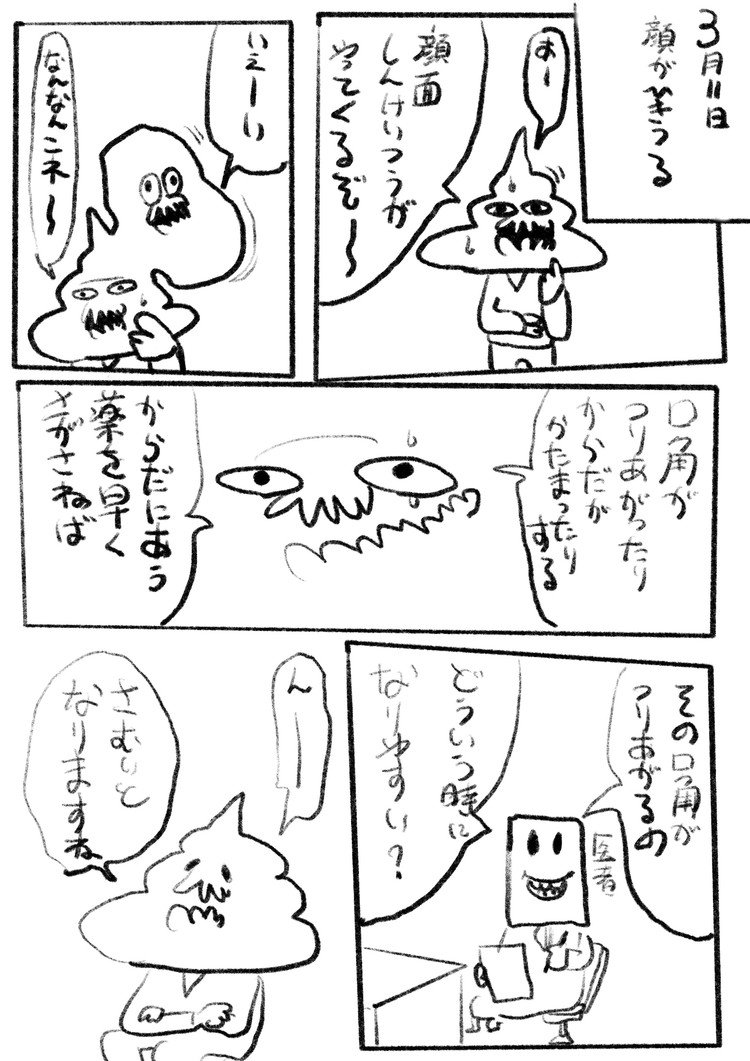 3月11日
顔が
あー
顔面
しんけいつうが
やってくるぞ〜
いえーい
なんなんこネ〜
口角が
つりあがったり
からだが
かたまったり
する
からだにあう
薬を早く
さがさねば
その口角が
つりあがるの
医者
どういう時に
なりやすい?
んー
さむいと
なりますね